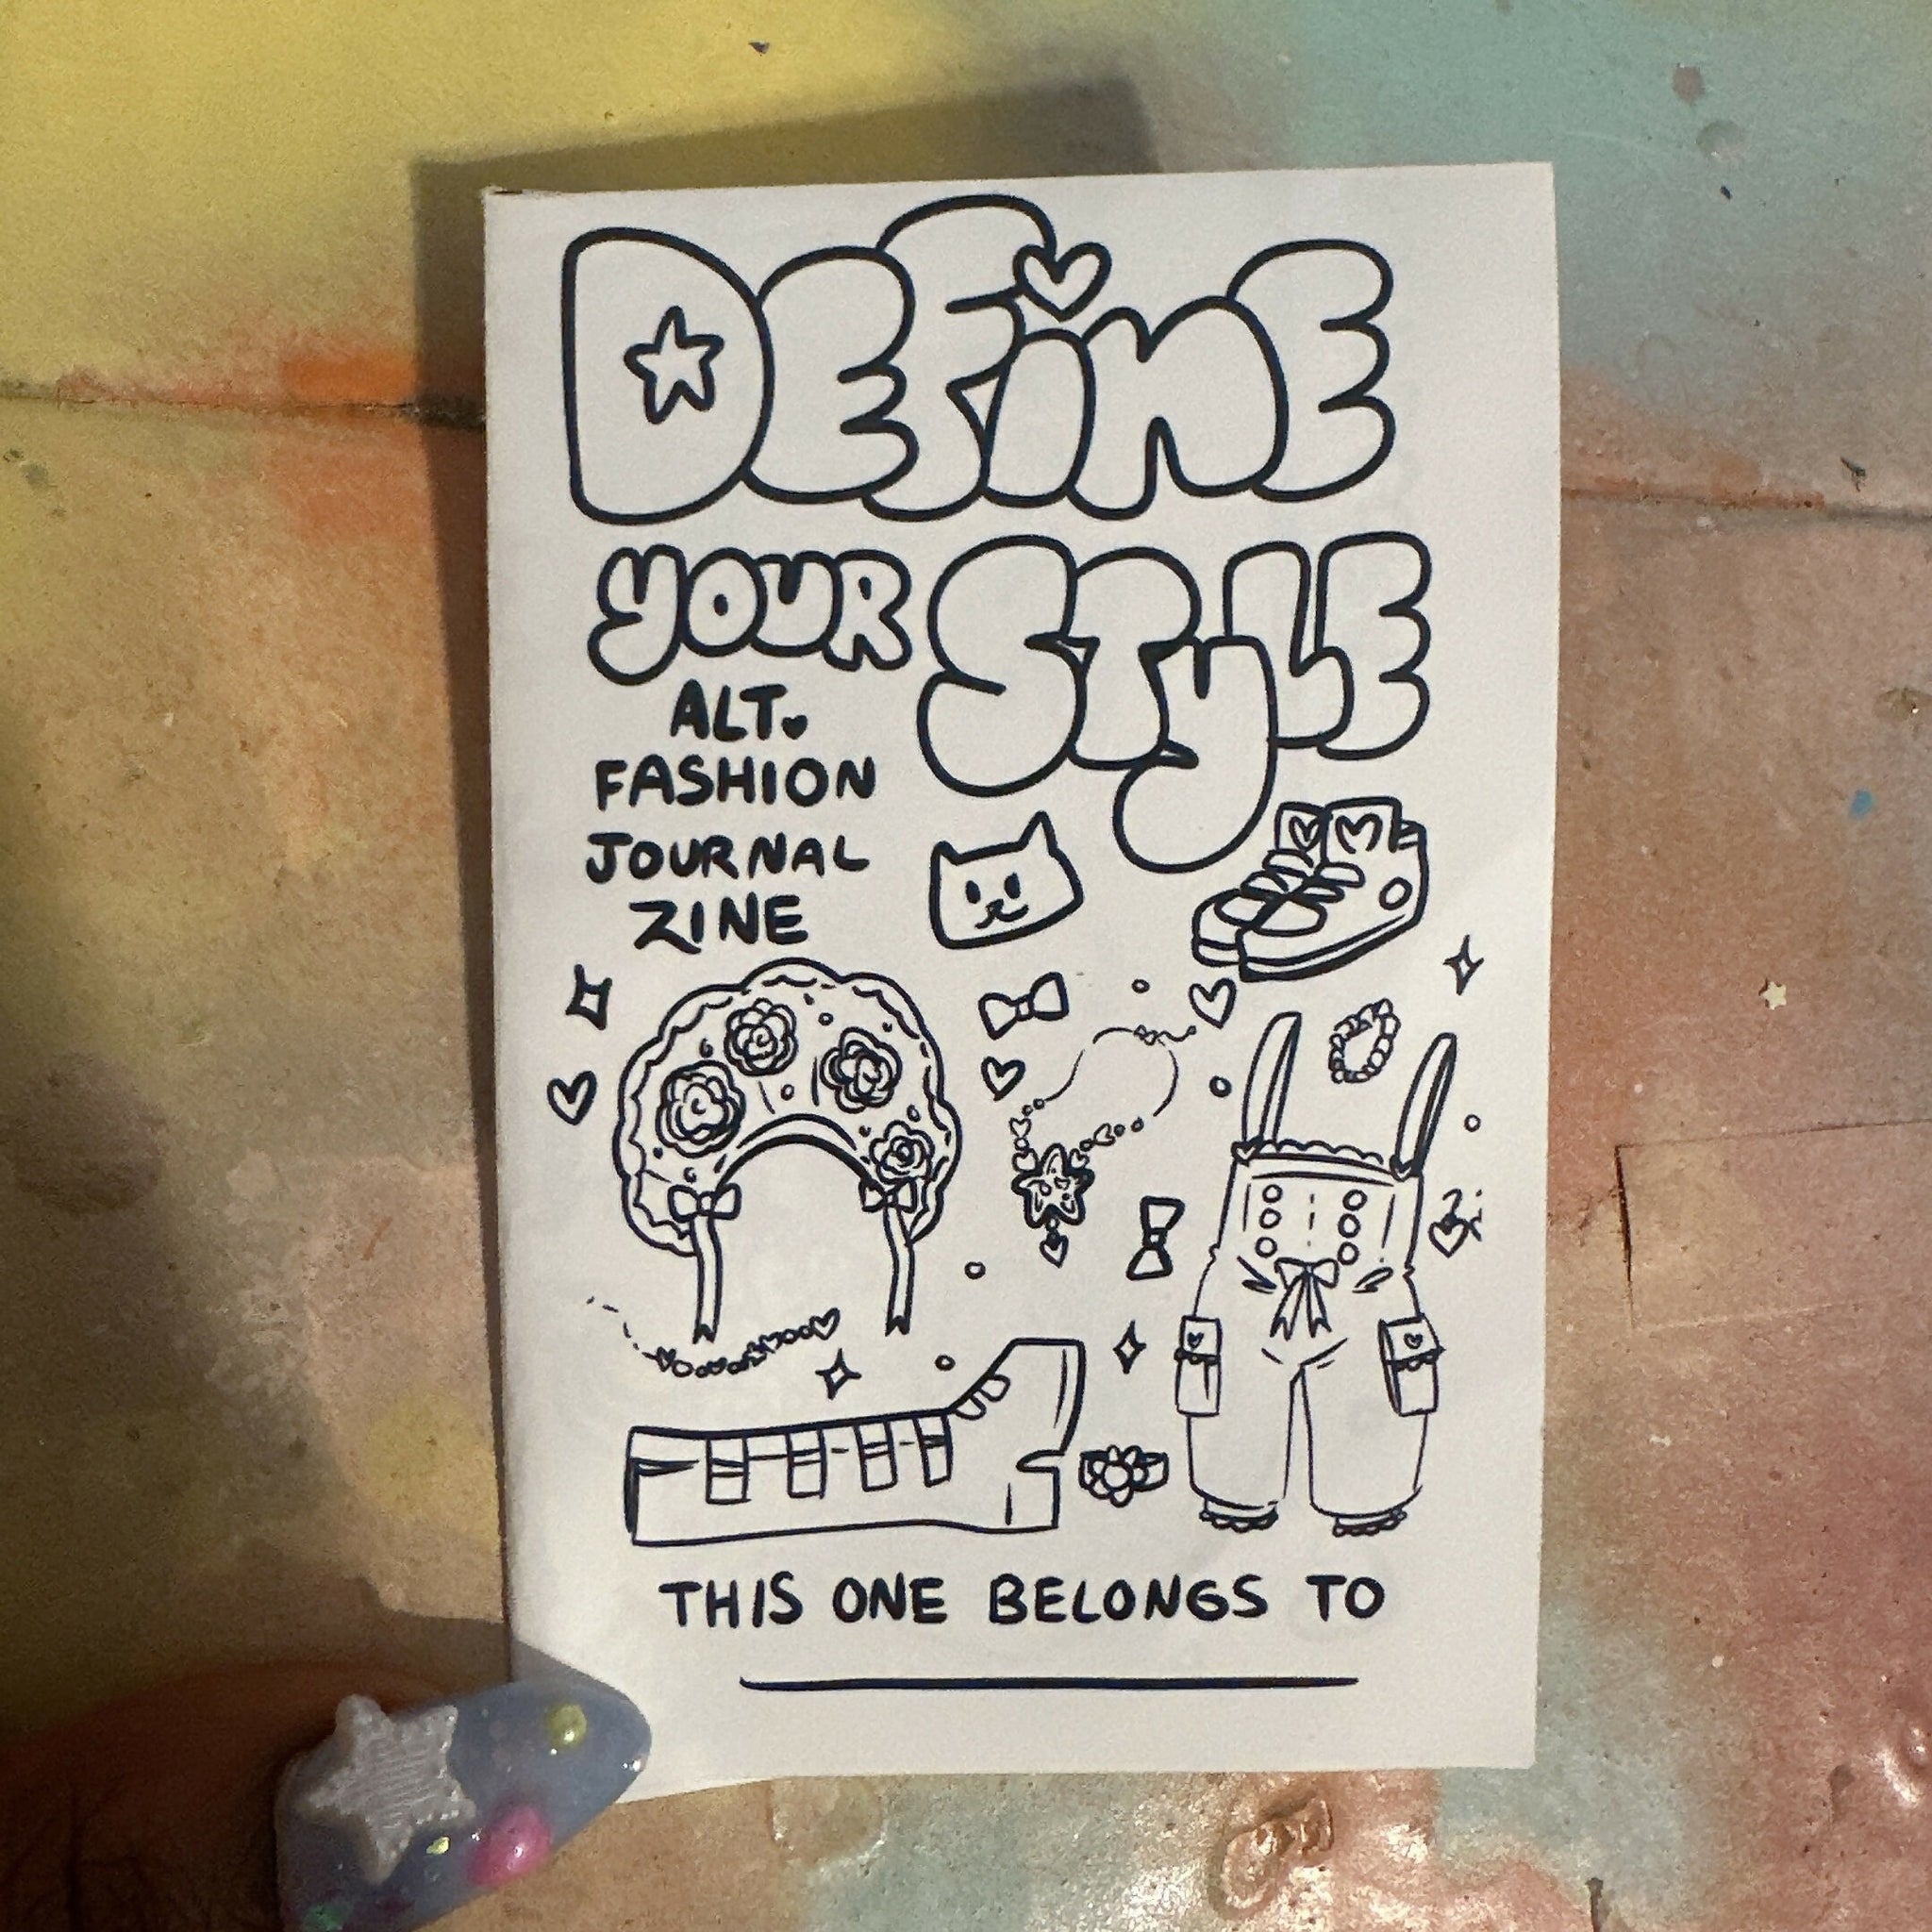 DEFiNE
YOUR STYLE
ALT.
FASHION
JOURNAL
ZINE
THIS ONE BELONGS TO